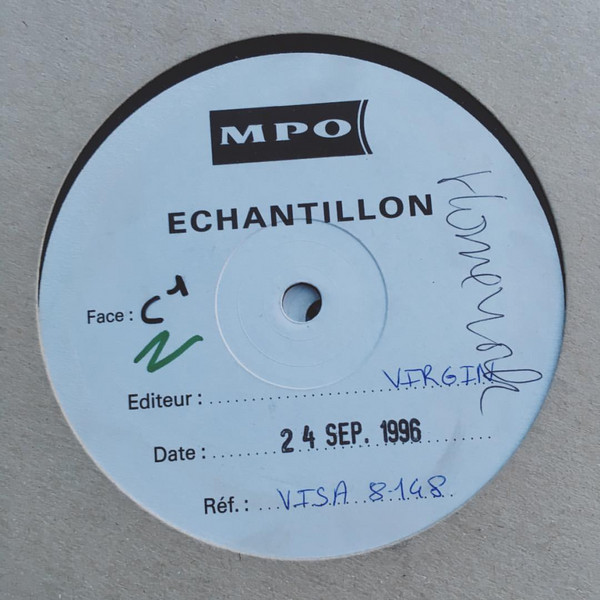 MPO
ECHANTILLON
Homework
Face : C1
N
Editeur : VIRGIN
Date : 24 SEP. 1996
Réf. : VISA 8148